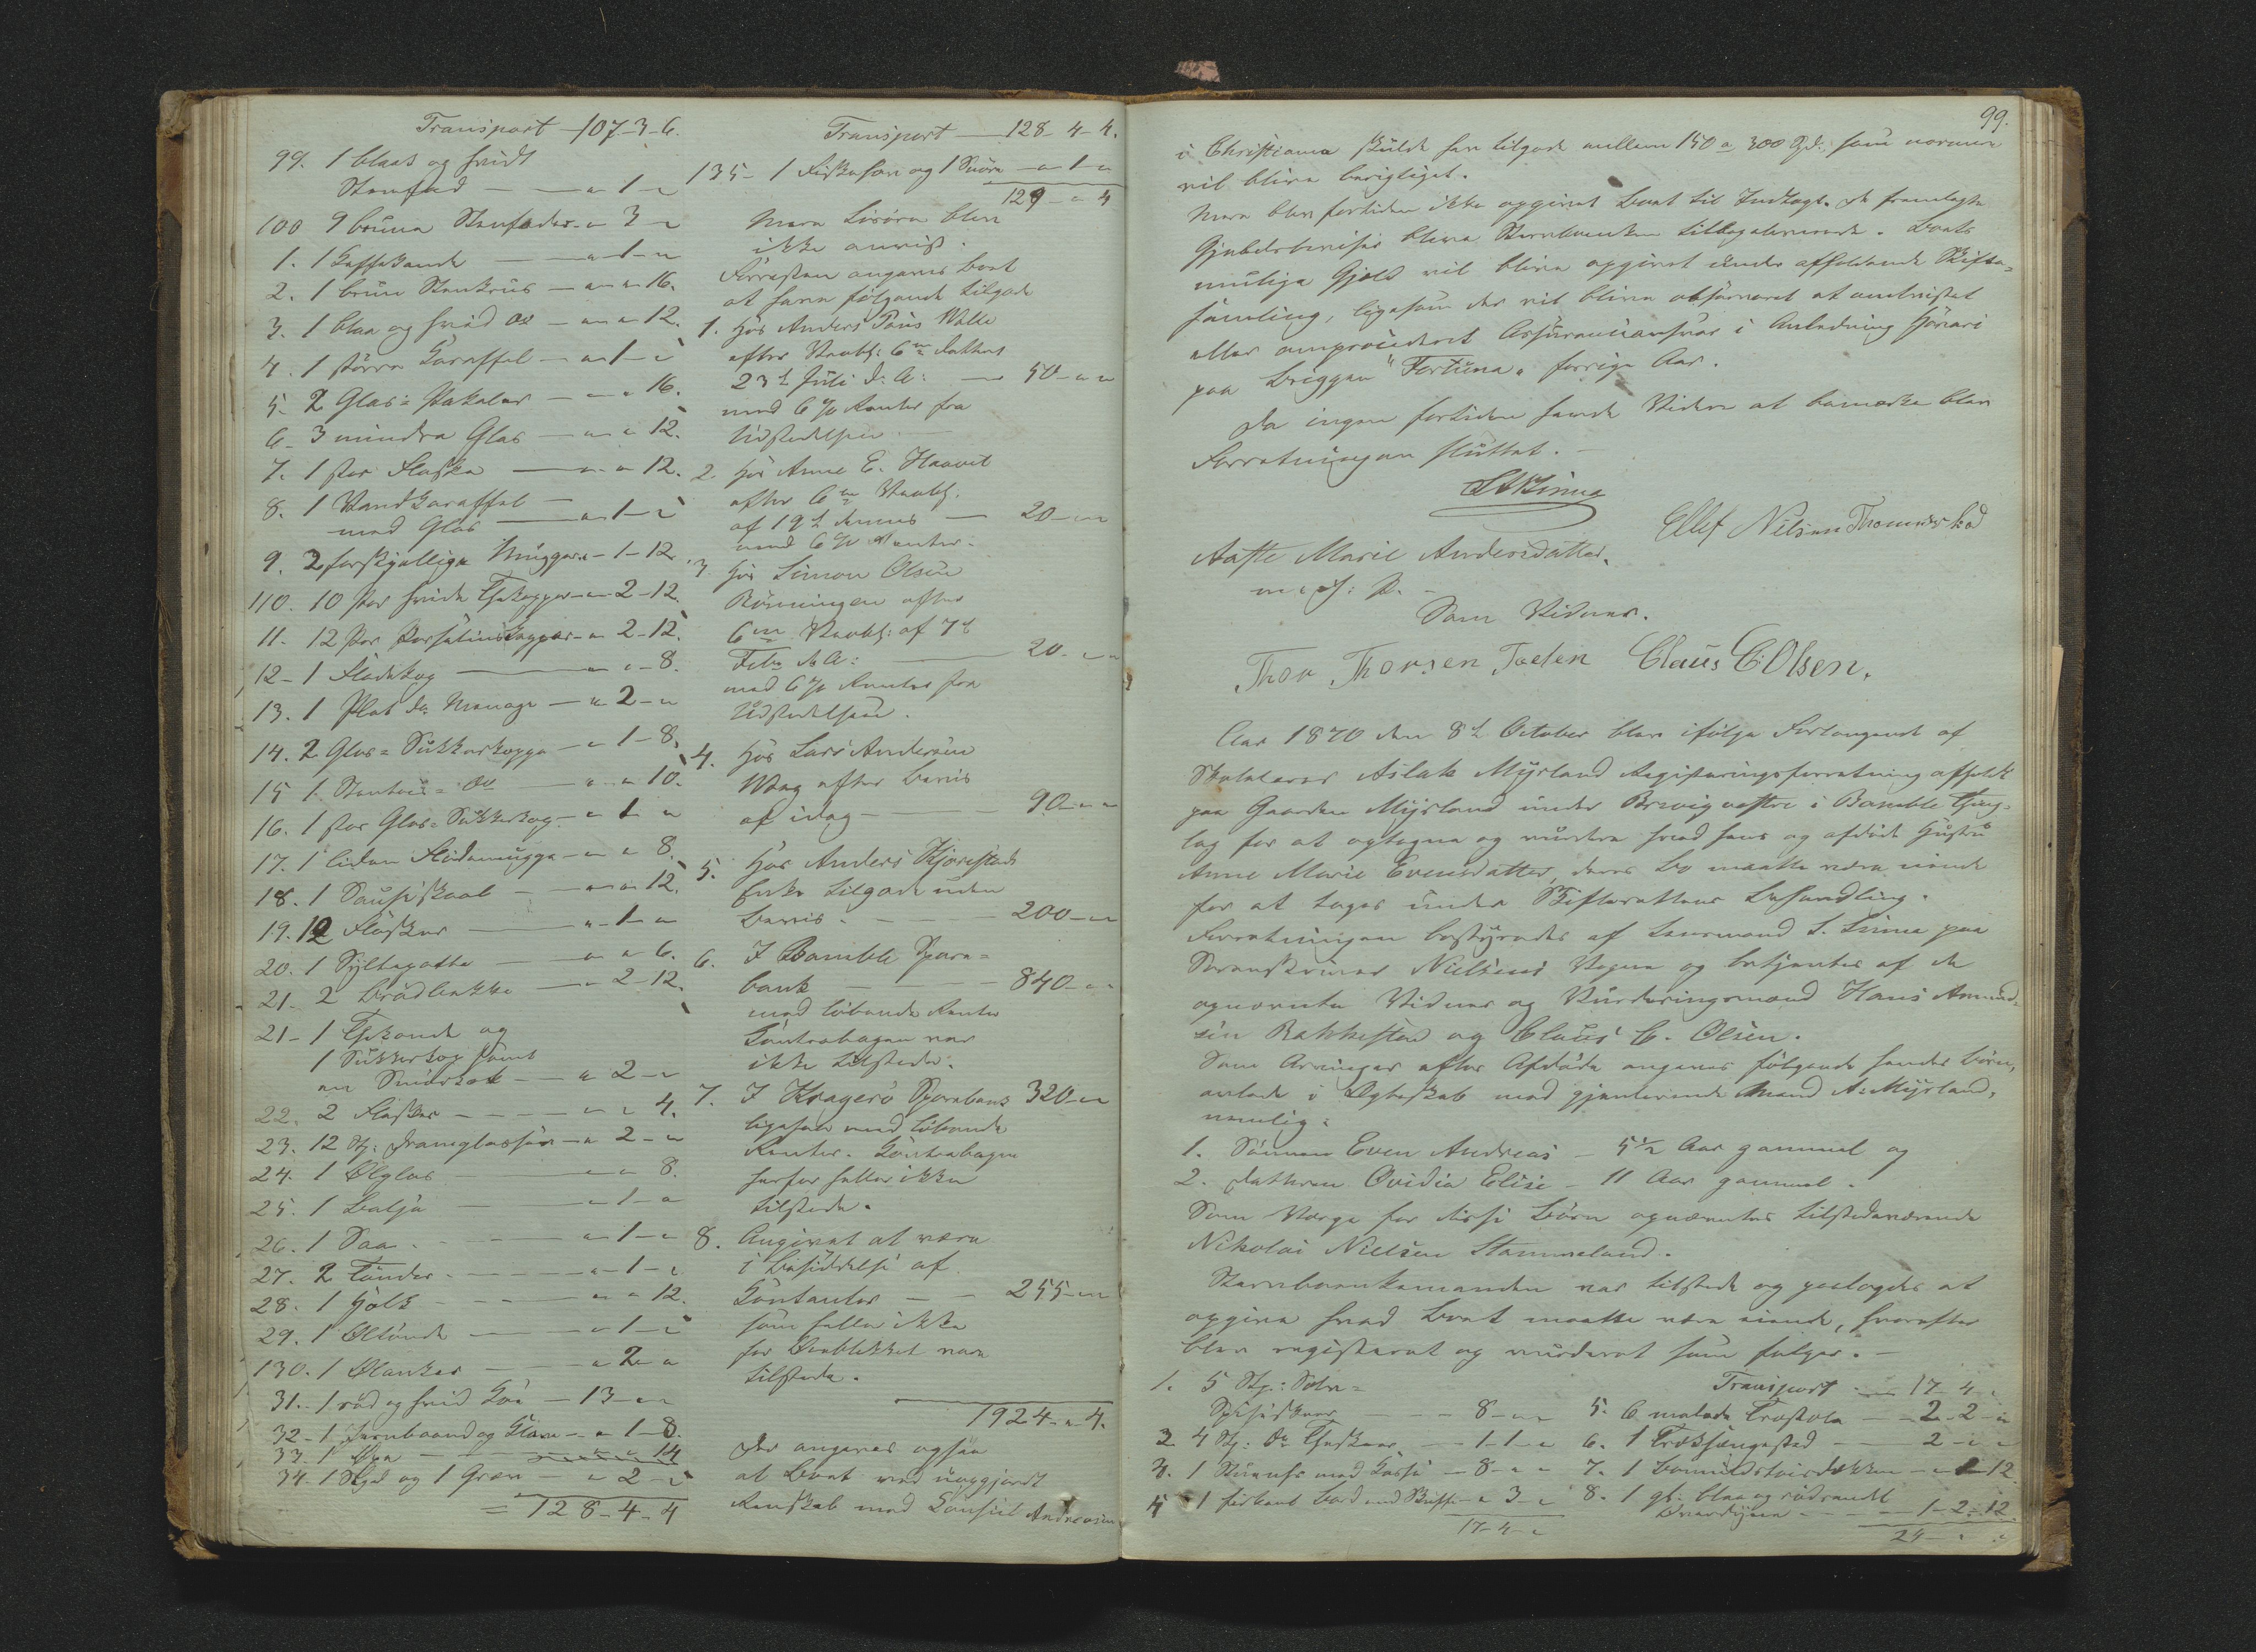 Transport - 107-3-6.
99. 1 blaat og hvidt
Stenfad - " 1 "
100 9 brune Stenfader - " 3 "
1. 1 Kaffekande - " 1 "
2. 1 brun Stenkrus - " " 16.
3. 1 blaa og hvid Do - " " 12.
4. 1 større Karaffel - " 1 "
5. 2 Glas-Pokaler - " " 16.
6. 3 mindre Glas - " " 12.
7. 1 stor Flaske - " " 12.
8. 1 Vandkaraffel
med Glas - " 1 "
9. 2 forskjellige Mugger - " 1-12.
110. 10 Par hvide Thekopper - " 2-12.
11. 12 Par Porselinskopper - " 2-12.
12. 1 Flødekop - " " 8.
13. 1 Plat de Menage - " 2 "
14. 2 Glas-Sukkerkopper - " 1-8.
15. 1 Stentøis- Do - " " 10.
16. 1 stor Glas-Sukkerkop - " 1 "
17. 1 liden Flødemugge - " " 8.
18. 1 Sauseskaal - " " 12.
19. 12 Flasker - " 1 "
20. 1 Syltepotte - " " 6.
21. 2 Brødbakke - " 2-12.
21. 1 Thekande og
1 Sukkerkop samt
en - " 2 "
22. 2 Flasker - " " 4.
23. 12 St: Dramglasse - " 2 "
24. 1 Ølglas - " " 8.
25. 1 Balje - " 1 "
26. 1 Saa - " 1 "
27. 2 Tønder - " 1 "
28. 1 Holk - " " 12.
29. 1 Øltønde - " 1 "
130. 1 Ølanker - " 2 "
31. 1 rød og hvid Ko - 13 " "
32. 1 Jernbaand og Klave - " 1-8.
33. 1 Øxe - " " 14
34. 1 og 1 Grev - " 2 "
= 128-4-4
Transport - 128-4-4.
135- 1 og 1 Snøre - " 1 "
129 " 4
Mere Løsøre blev
ikke anvist.
Forresten angaves Boet
at have følgende tilgode
1. Hos Anders Pous Valle
efter Vexel: 6m dateret
23d Juli d: A: - 50 " "
med 6% Renter fra
Udstedelsen.
2. Hos Anne E. Haavet
efter 6m Vexel:
af 19d dennes - 20 " "
med 6% Renter.
3. Hos Simon Olsen
Rønningen efter
6m Vexel: af 7d
Febr d: A: - 20 " "
med 6% Renter fra
Udstedelsen.
4. Hos Lars Andersen
Wøag efter Bevis
af idag - 90 " "
5. Hos Anders Kjørestads
Enke tilgode uden
Bevis. - 200 " "
6. I Bamble Spare=
bank - 840 " "
med løbende Renter
Contrabogen var
ikke tilstede.
7. I Kragerø Sparebank 320 " "
ligesaa med løbende
Renter. Contrabogen
herfor heller ikke
tilstede.
8. Angivet at være
i Besiddelse af
Contanter - 255 " "
som heller ikke
for Øieblikket vare
tilstede.
1924 " 4.
Der angaves ogsaa
at Boet ved uopgjort
Regnskab med Consul Andresen
99.
i Christiania skulde have tilgode mellem 150 a 300 Spd: som nærmere
vil blive berigtiget.
Mere blev fortiden ikke opgivet Boet til Indtægt. De fremlagte
Gjeldsbeviser bleve Stervboenken tilbageleverede. Boets
mulige Gjeld vil blive opgivet under afholdende Skifte=
samling, ligesom der vil blive observeret at
eller Assuranceansvar i Anledning Havari
paa Briggen "Fortuna" forrige Aar.
Da ingen fortiden havde Videre at bemærke blev
Forretningen sluttet.
S Linne
Ellef Nilsen
Aaste Marie Andersdatter.
m: i: P.
Som Vidner.
Thor Thorsen Tveten Claus C. Olsen.
Aar 1870 den 8d October blev ifølge Forlangende af
Skolelærer Aslak Myrland Registreringsforretning afholdt
paa Gaarden Myrland under Brevig vestre i Bamble Thing=
lag for at optegne og vurdere hvad hans og afdøde Hustru
Anne Marie Evensdatter, deres Bo maatte være eiende
for at tages under Skifterettens Behandling.
Forretningen bestyredes af Lensmand S. Linne paa
Sorenskriver Nielsens Vegne og betjentes af de
opnævnte Vidner og Vurderingsmænd Hans Amund=
sen Bakkesten og Claus C. Olsen.
Som Arvinger efter Afdøde angaves følgende hendes Børn,
avlede i Ægteskab med gjenlevende Mand A: Myrland,
nemlig:
1. Sønnen Even Andreas - 5½ Aar gammel og
2. Datteren Ovidia Elise - 11 Aar gammel.
Som Værge for disse Børn opnævntes tilstedeværende
Nikolai Nielsen Stammeland.
Stervboenkemanden var tilstede og paalagdes at
opgive hvad Boet maatte være eiende, hvorefter
blev registreret og vurderet som følger.
1. 5 Stp: Sølv=
Spiseskeer - 8 " "
2. 4 Stp: Do Theskeer - 1-1 "
3. 1 Stueuhr med Kasse - 8 " "
4. 1 firkant Bord med Skuffe - " 3 "
17-4 "
Transport - 17-4 "
5. 6 malede Træstole - 2-2 "
6. 1 Træksengested - 2 " "
7. 1 - " 1-12.
8. 1 gl: blaa og rødrandet
Overdyne - 1-2-12.
24 " "